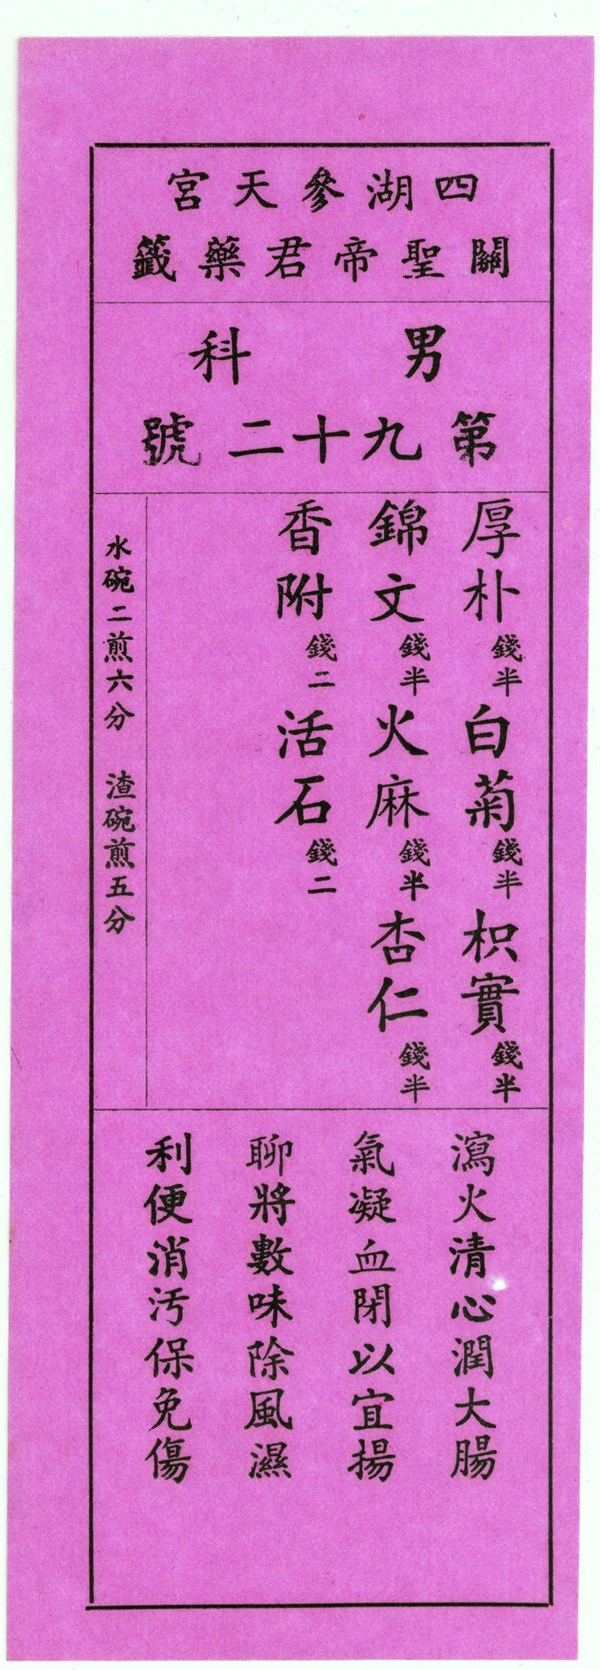 四湖參天宮
關聖帝君藥籤
男科
第九十二號
厚朴錢半 白菊錢半 枳實錢半
錦文錢半 火麻錢半 杏仁錢半
香附錢二 活石錢二
水碗二煎六分 渣碗煎五分
瀉火清心潤大腸
氣凝血閉以宜揚
聊將數味除風濕
利便消汚保免傷